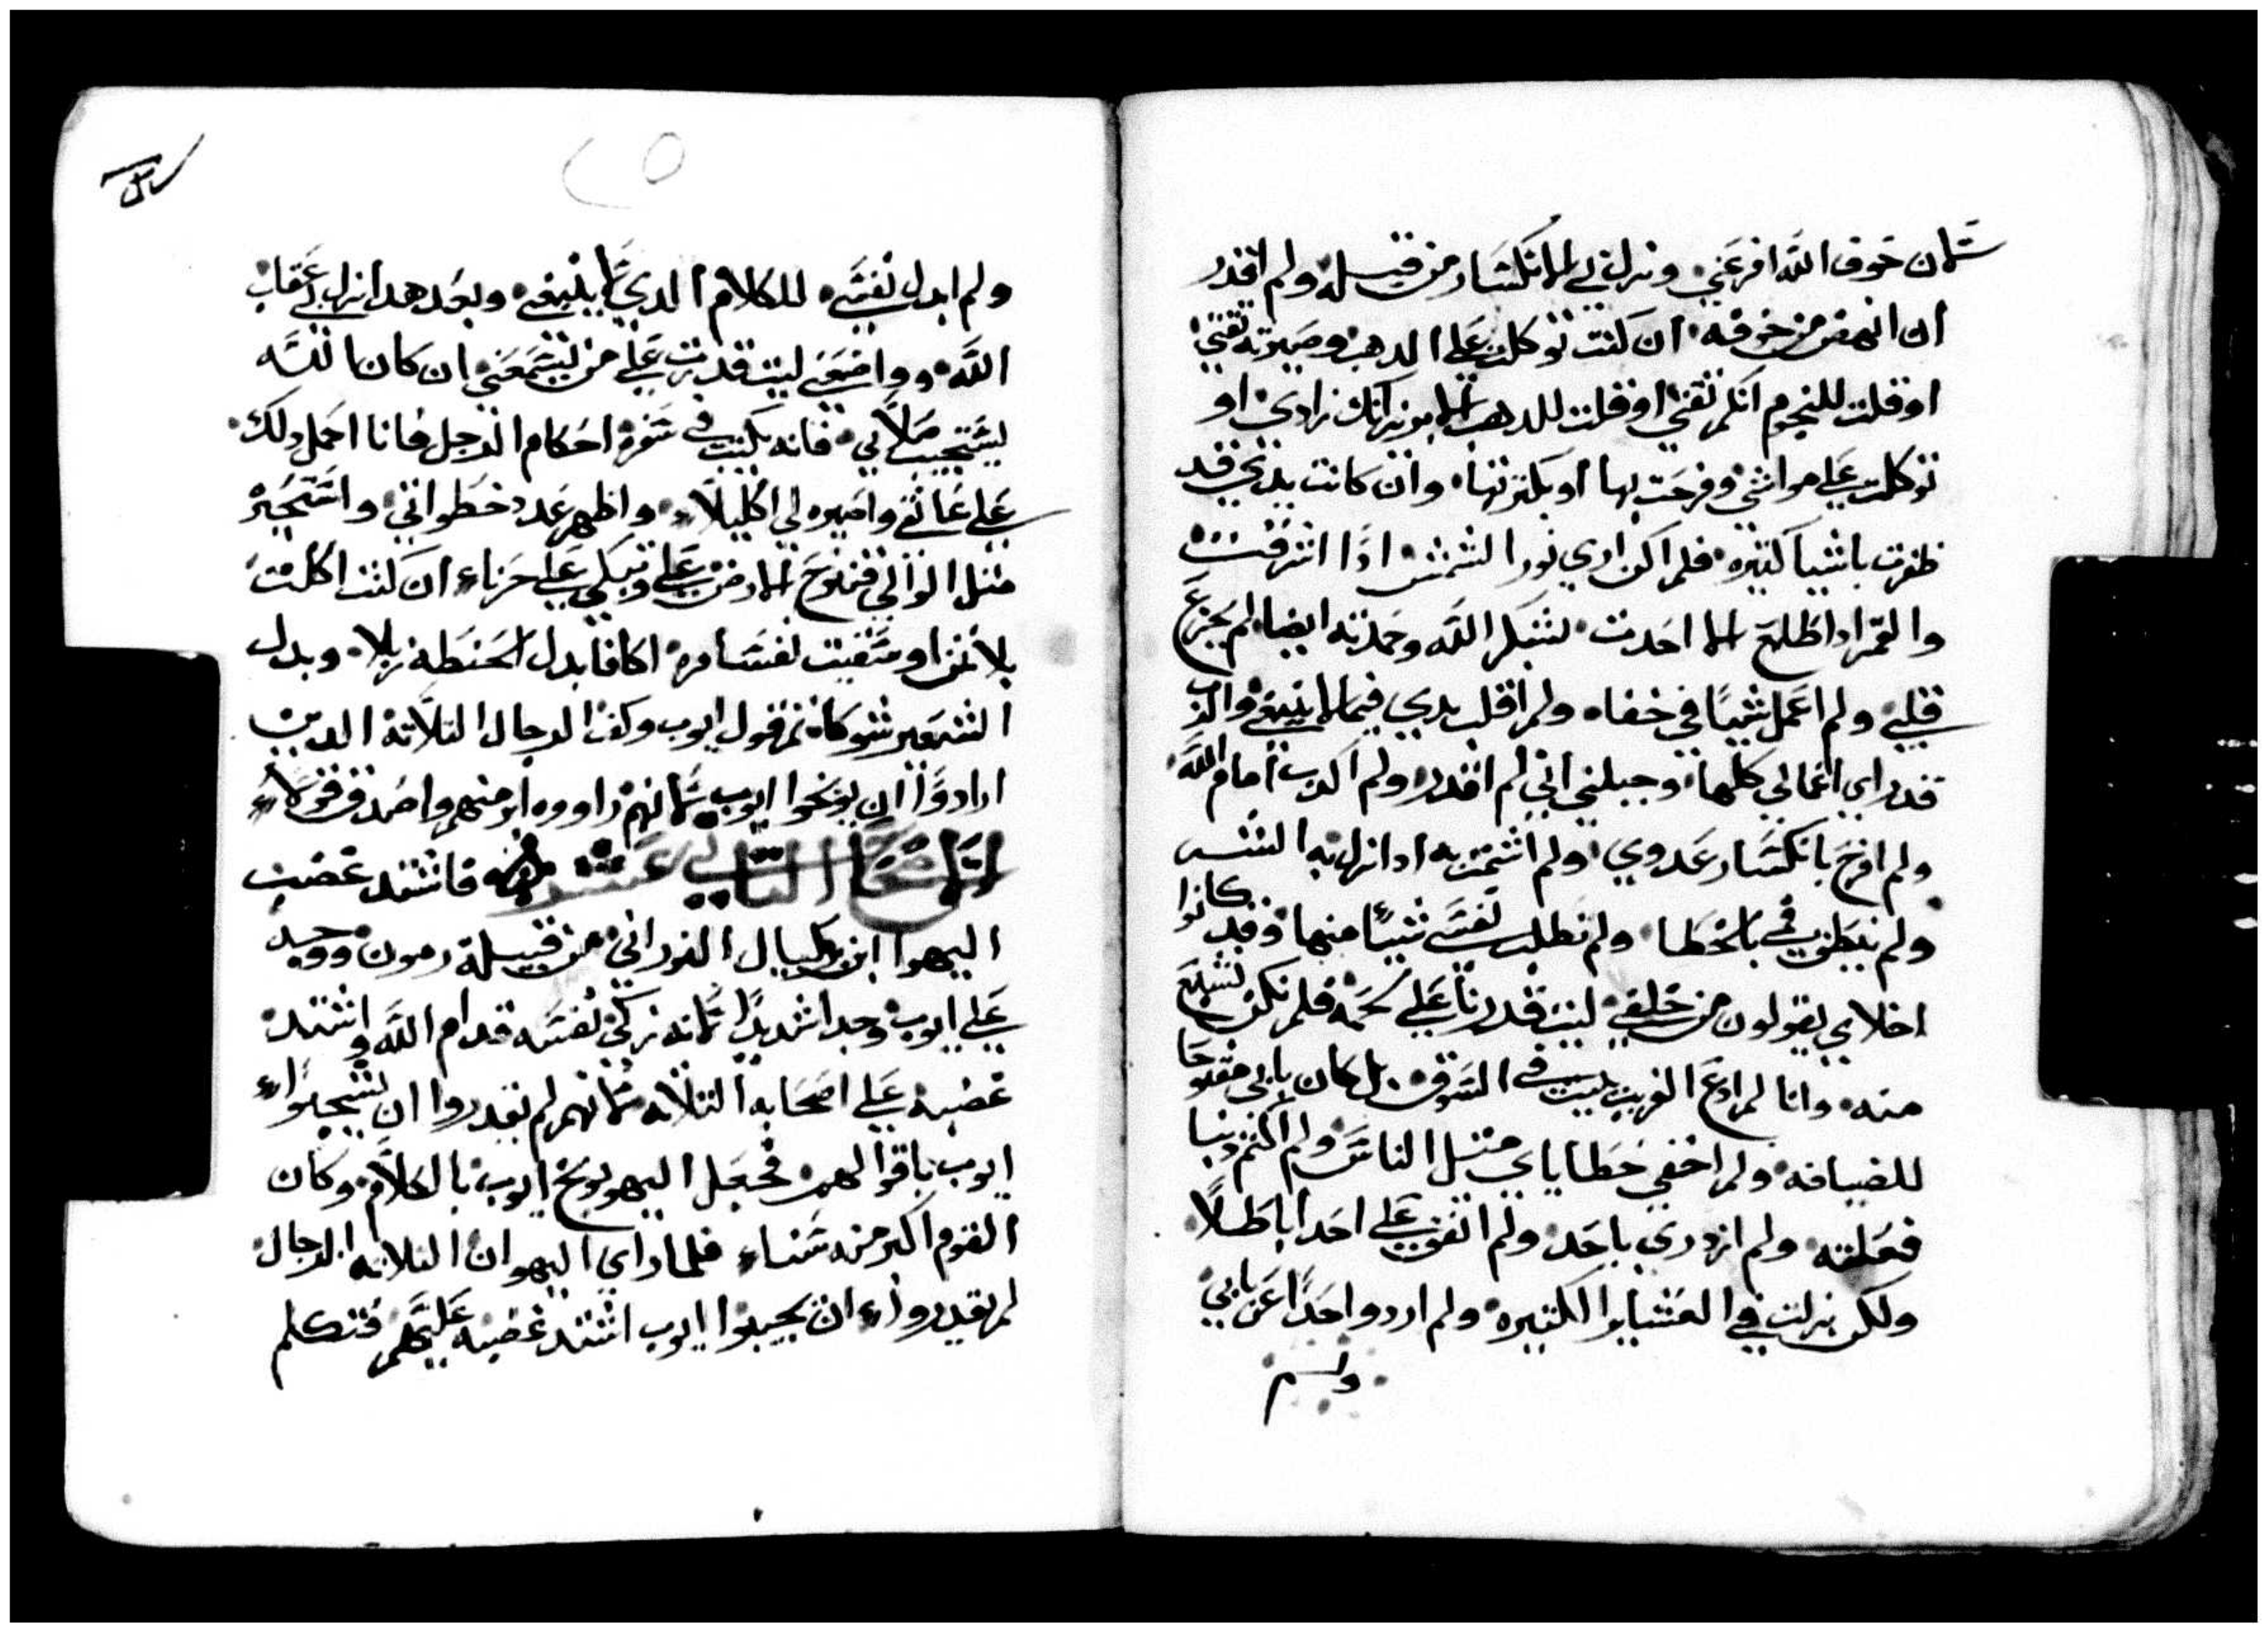 لان خوف الله افزعني ونزل بي الانكسار من قبله ولم اقدر
ان انهض من خوفه ان كنت توكلت علي الدهب وصيرته ثقتي
او قلت للنجوم انكم ثقتي او قلت للدهب الابريز انك زادي او
توكلت علي مواشي وفرحت بها او بكثرتها وان كانت يدي قد
ظفرت باشيا كثيره فلم اكن اري نور الشمش ادا اشرقت
والقمر ادا طلع الا احدت بشكر الله وحمدته ايضا لم يجزع
قلبي ولم اعمل شيًا في خفاه ولم اقلب يدي فيما لا ينبغي والرب
قد راي اعمالي كلها وجبلني اني لم اقدر ولم اكدب امام الله
ولم افرح بانكسار عدوي ولم اشمت به ادا نزل به الشر
ولم ينطق فمي بالخطا ولم تطلب نفسي شيًا منها وقد كانوا
اخلاي يقولون من خلفي ليت قدرنا علي لحمه فلم نكن نشبع
منه وانا لم ادع الغريب يبيت في السوق بل كان بابي مفتوحا
للضيافه ولم اخفي خطاياي مثل الناس ولم اكتم دنبا
فعلته ولم ازدري باحد ولم اتقف علي احدا باطلًا
ولكن نزلت في العشاير الكثيره ولم اردد احدًا عن بابي
ولم
٢٥
ولم ابدل نفسي للكلام الدي لا ينبغي وبعد هدا نزل بي عقاب
الله وواضعني ليت قدرت علي من يسمعني ان كان الله
يستجيب صلاتي فانه يكتب في سفره احكام الرجل فانا احمل دلك
علي عاتقي واصيره لي اكليلًا واظهر عدد خطواتي واستجير
مثل الوالي فتنوح الارض علي وتبكي علي حرثاء ان كنت اكلت
بلا ثمن او شقيت نفسا مره اكافا بدل الحنطه زبلا وبدل
الشعير شوكا تم قول ايوب وكف الرجال التلاته الدين
ارادوا ان يوبخوا ايوب لانهم راووه ابر منهم واصدق قولًا
الاصحاح الثاني عشر فاشتد غضب
اليهوا ابن بركيال الفوراني من قبيلة رمون ووجد
علي ايوب وجدا شديدًا لانه زكي نفسه قدام الله واشتد
غضبه علي اصحابه التلاته لانهم لم يقدروا ان يستجيبوا
ايوب باقوالهم فجعل اليهو يوبخ ايوب بالكلام وكان
القوم اكبر منه سنا فلما راي اليهو ان التلاته الرجال
لم يقدروا ان يجيبوا ايوب اشتد غضبه عليهم فتكلم